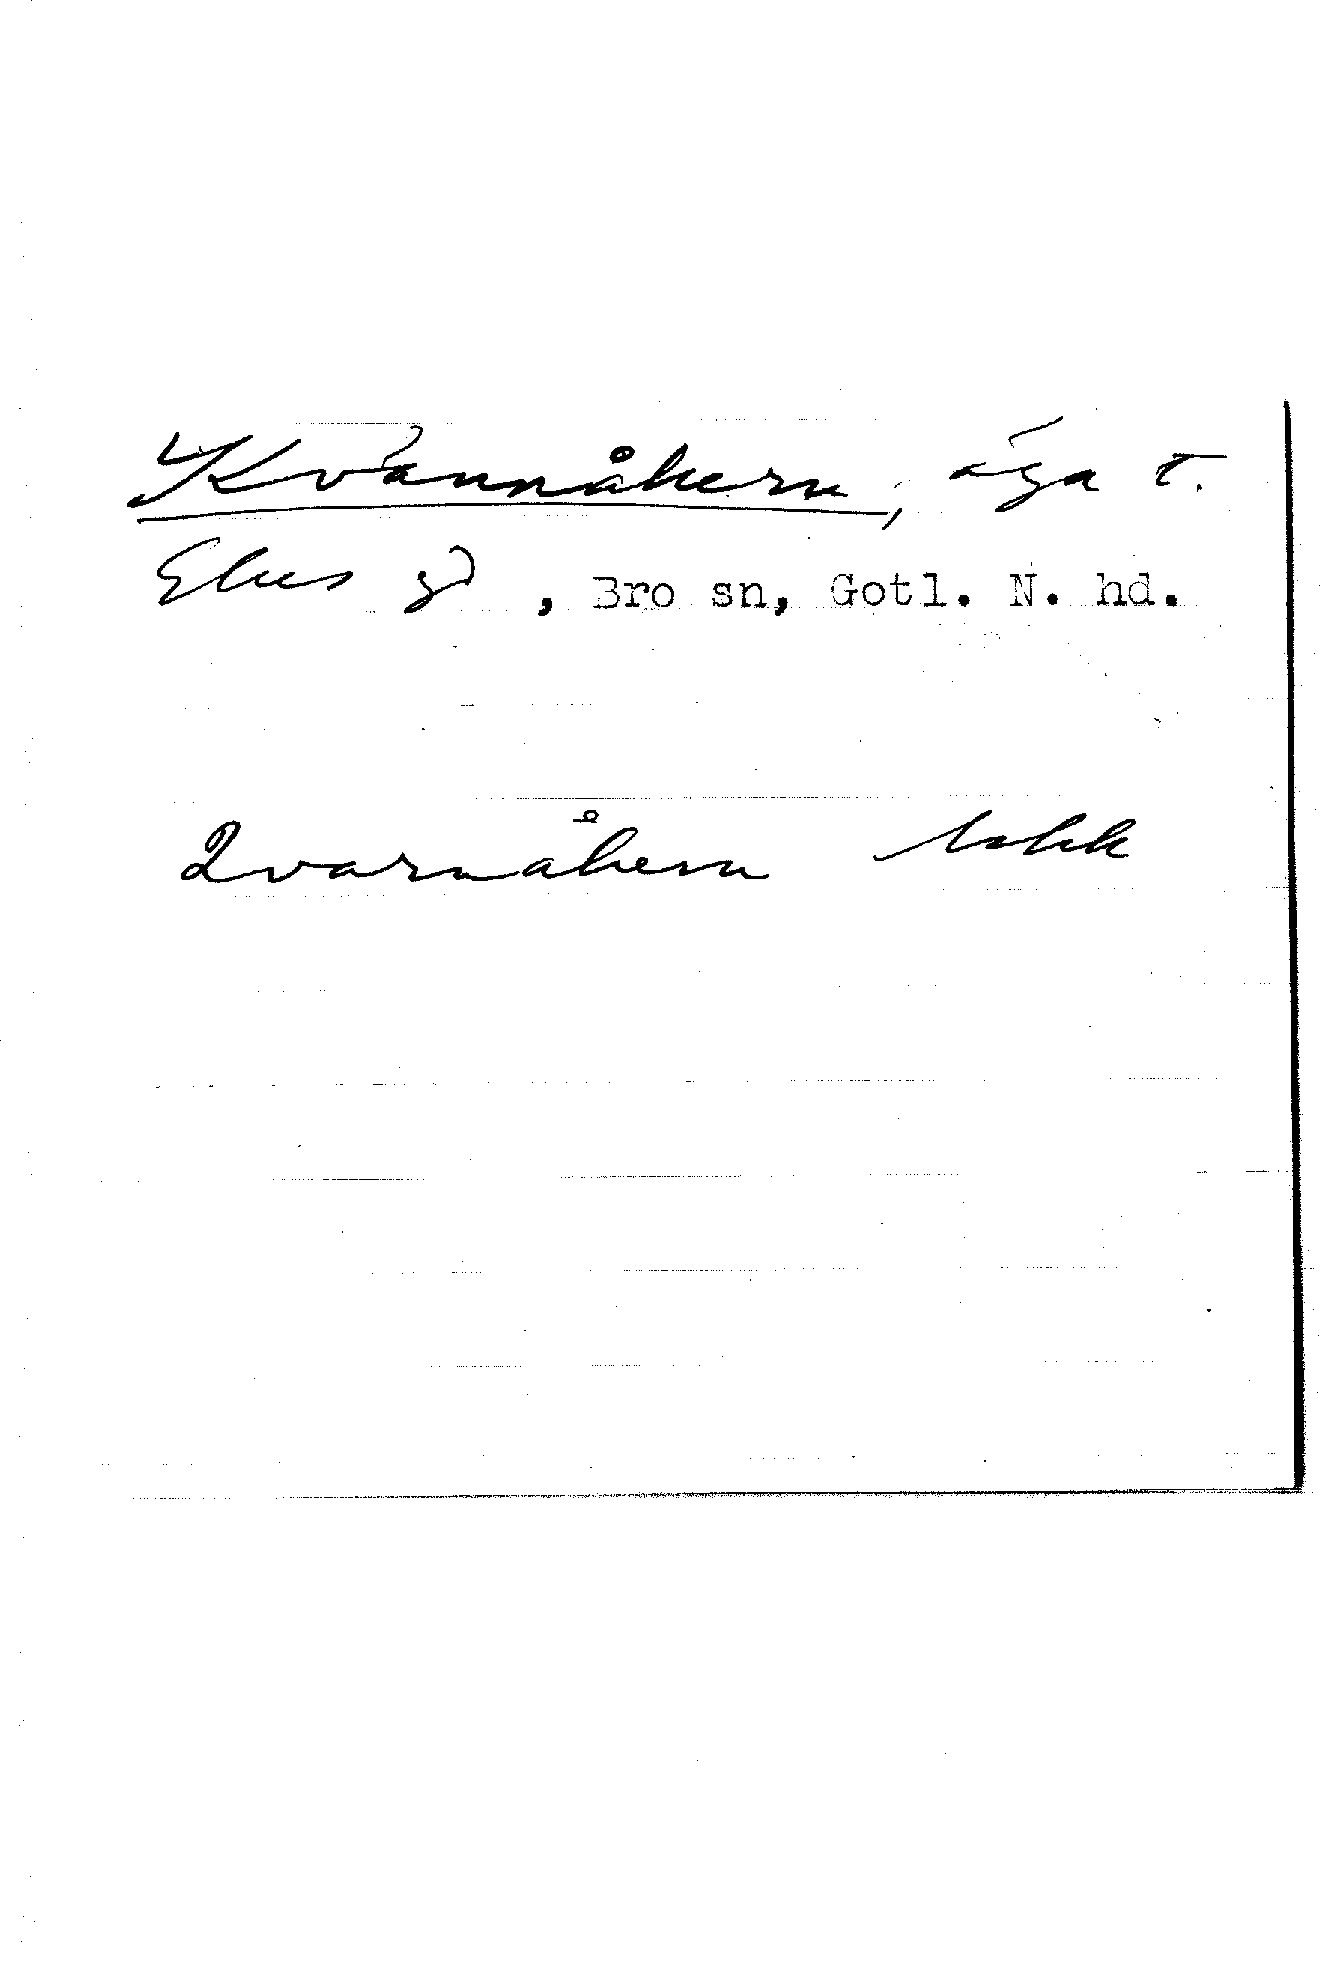 Kvannåkern, äga t.
Ekes gd, Bro sn, Gotl. N. hd.
Qvarnåkern